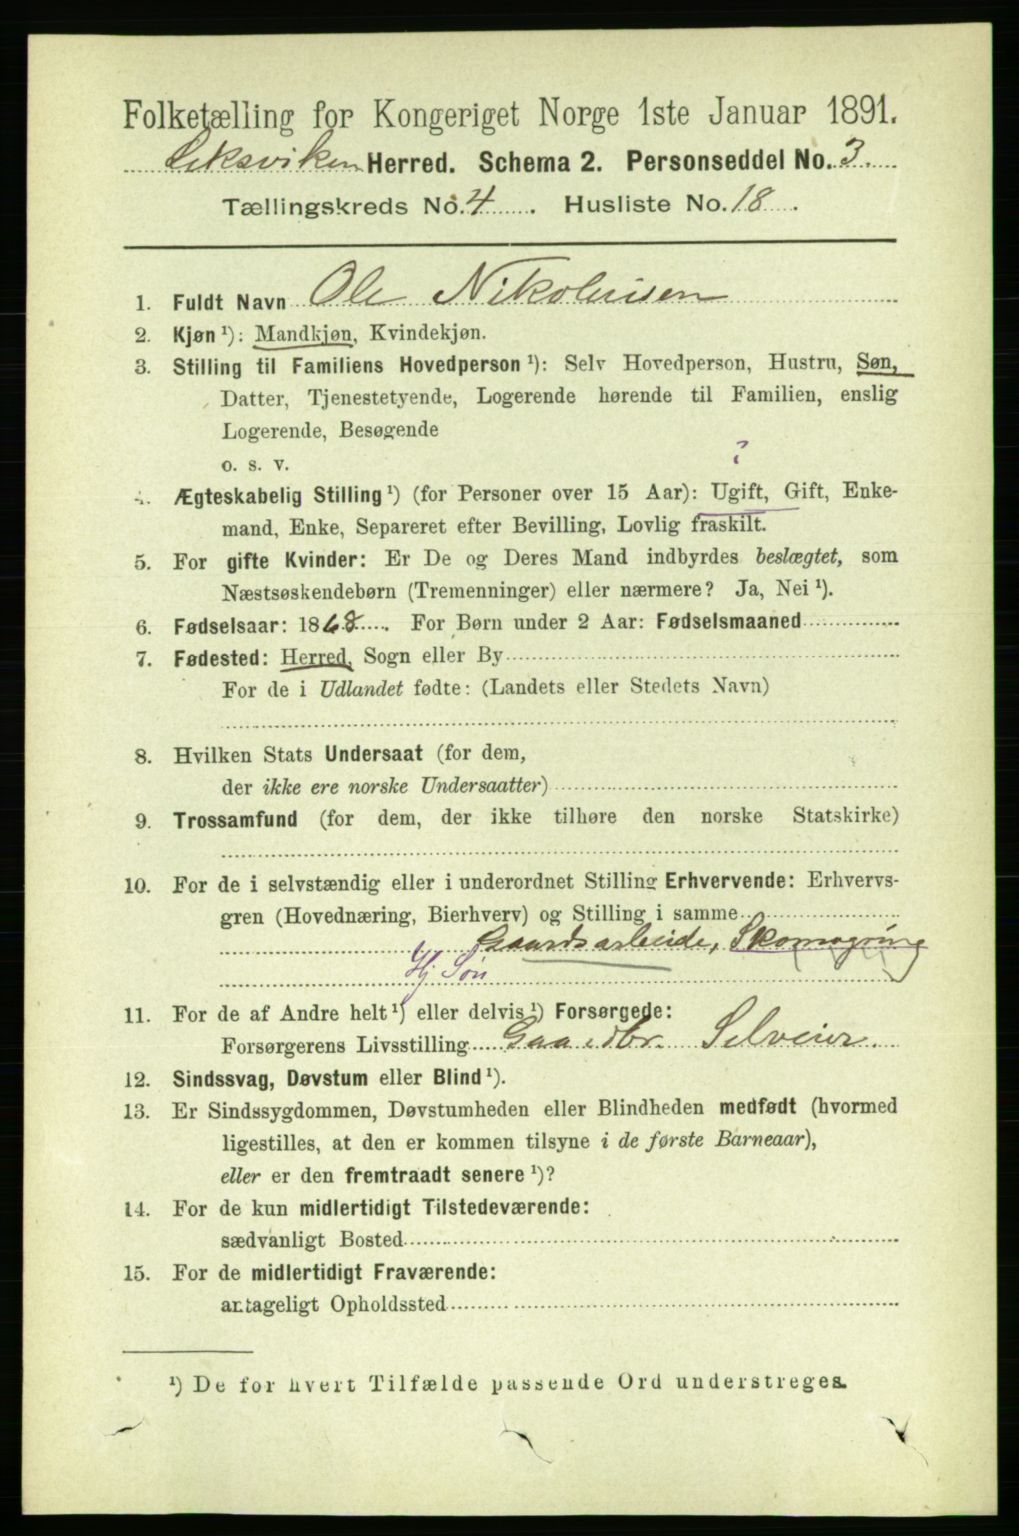 Folketælling for Kongeriget Norge 1ste Januar 1891.
Leksviken Herred. Schema 2. Personseddel No. 3.
Tællingskreds No. 4. Husliste No. 18.
1. Fuldt Navn Ole Nikolaisen
2. Kjøn ¹): Mandkjøn, Kvindekjøn.
3. Stilling til Familiens Hovedperson ¹): Selv Hovedperson, Hustru, Søn,
Datter, Tjenestetyende, Logerende hørende til Familien, enslig
Logerende, Besøgende
o. s. v.
?
4. Ægteskabelig Stilling ¹) (for Personer over 15 Aar): Ugift, Gift, Enke-
mand, Enke, Separeret efter Bevilling, Lovlig fraskilt.
5. For gifte Kvinder: Er De og Deres Mand indbyrdes beslægtet, som
Næstsøskendebørn (Tremenninger) eller nærmere? Ja, Nei ¹).
6. Fødselsaar: 1868. For Børn under 2 Aar: Fødselsmaaned
7. Fødested: Herred, Sogn eller By
For de i Udlandet fødte: (Landets eller Stedets Navn)
8. Hvilken Stats Undersaat (for dem,
der ikke ere norske Undersaatter)
9. Trossamfund (for dem, der ikke tilhøre den norske Statskirke)
10. For de i selvstændig eller i underordnet Stilling Erhvervende: Erhvervs-
gren (Hovednæring, Bierhverv) og Stilling i samme
Gaardsarbeide, Skomagring
Hj Søn
11. For de af Andre helt ¹) eller delvis ¹) Forsørgede:
Forsørgerens Livsstilling Gaardbr. Selveier.
12. Sindssvag, Døvstum eller Blind ¹).
13. Er Sindssygdommen, Døvstumheden eller Blindheden medfødt (hvormed
ligestilles, at den er kommen tilsyne i de første Barneaar),
eller er den fremtraadt senere ¹)?
14. For de kun midlertidigt Tilstedeværende:
sædvanligt Bosted
15. For de midlertidigt Fraværende:
antageligt Opholdssted
¹) De for hvert Tilfælde passende Ord understreges.